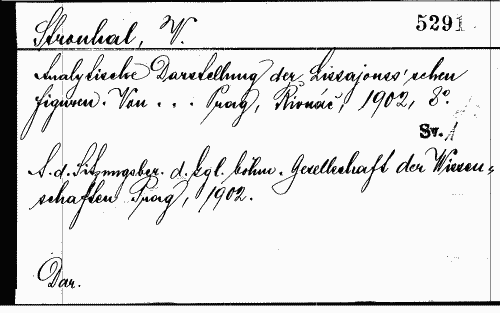 Strouhal, V.
5291
Analytische Darstellung der Lissajouss'schen
figuren. Von . . . Prag, Rivnáč, 1902, 8°.
Sv. 1
S. d. Sitzungsber. d. kgl. böhm. Gesellschaft der Wissen-
schaften Prag, 1902.
Dar.